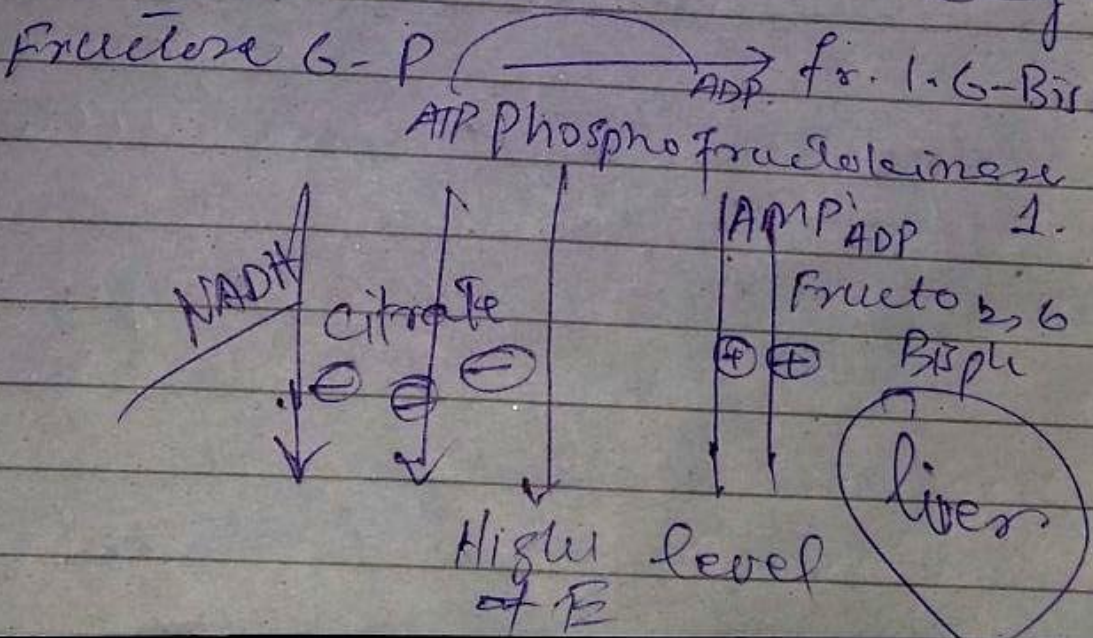 Fructose 6-P → fr. 1.6-Bis
ATP ADP
Phosphofructokinase
1.
NADH Citrate AMP ADP
Fructo 2,6
Bisph
⊖ ⊖ ⊖ ⊕ ⊕
liver
High level
of E